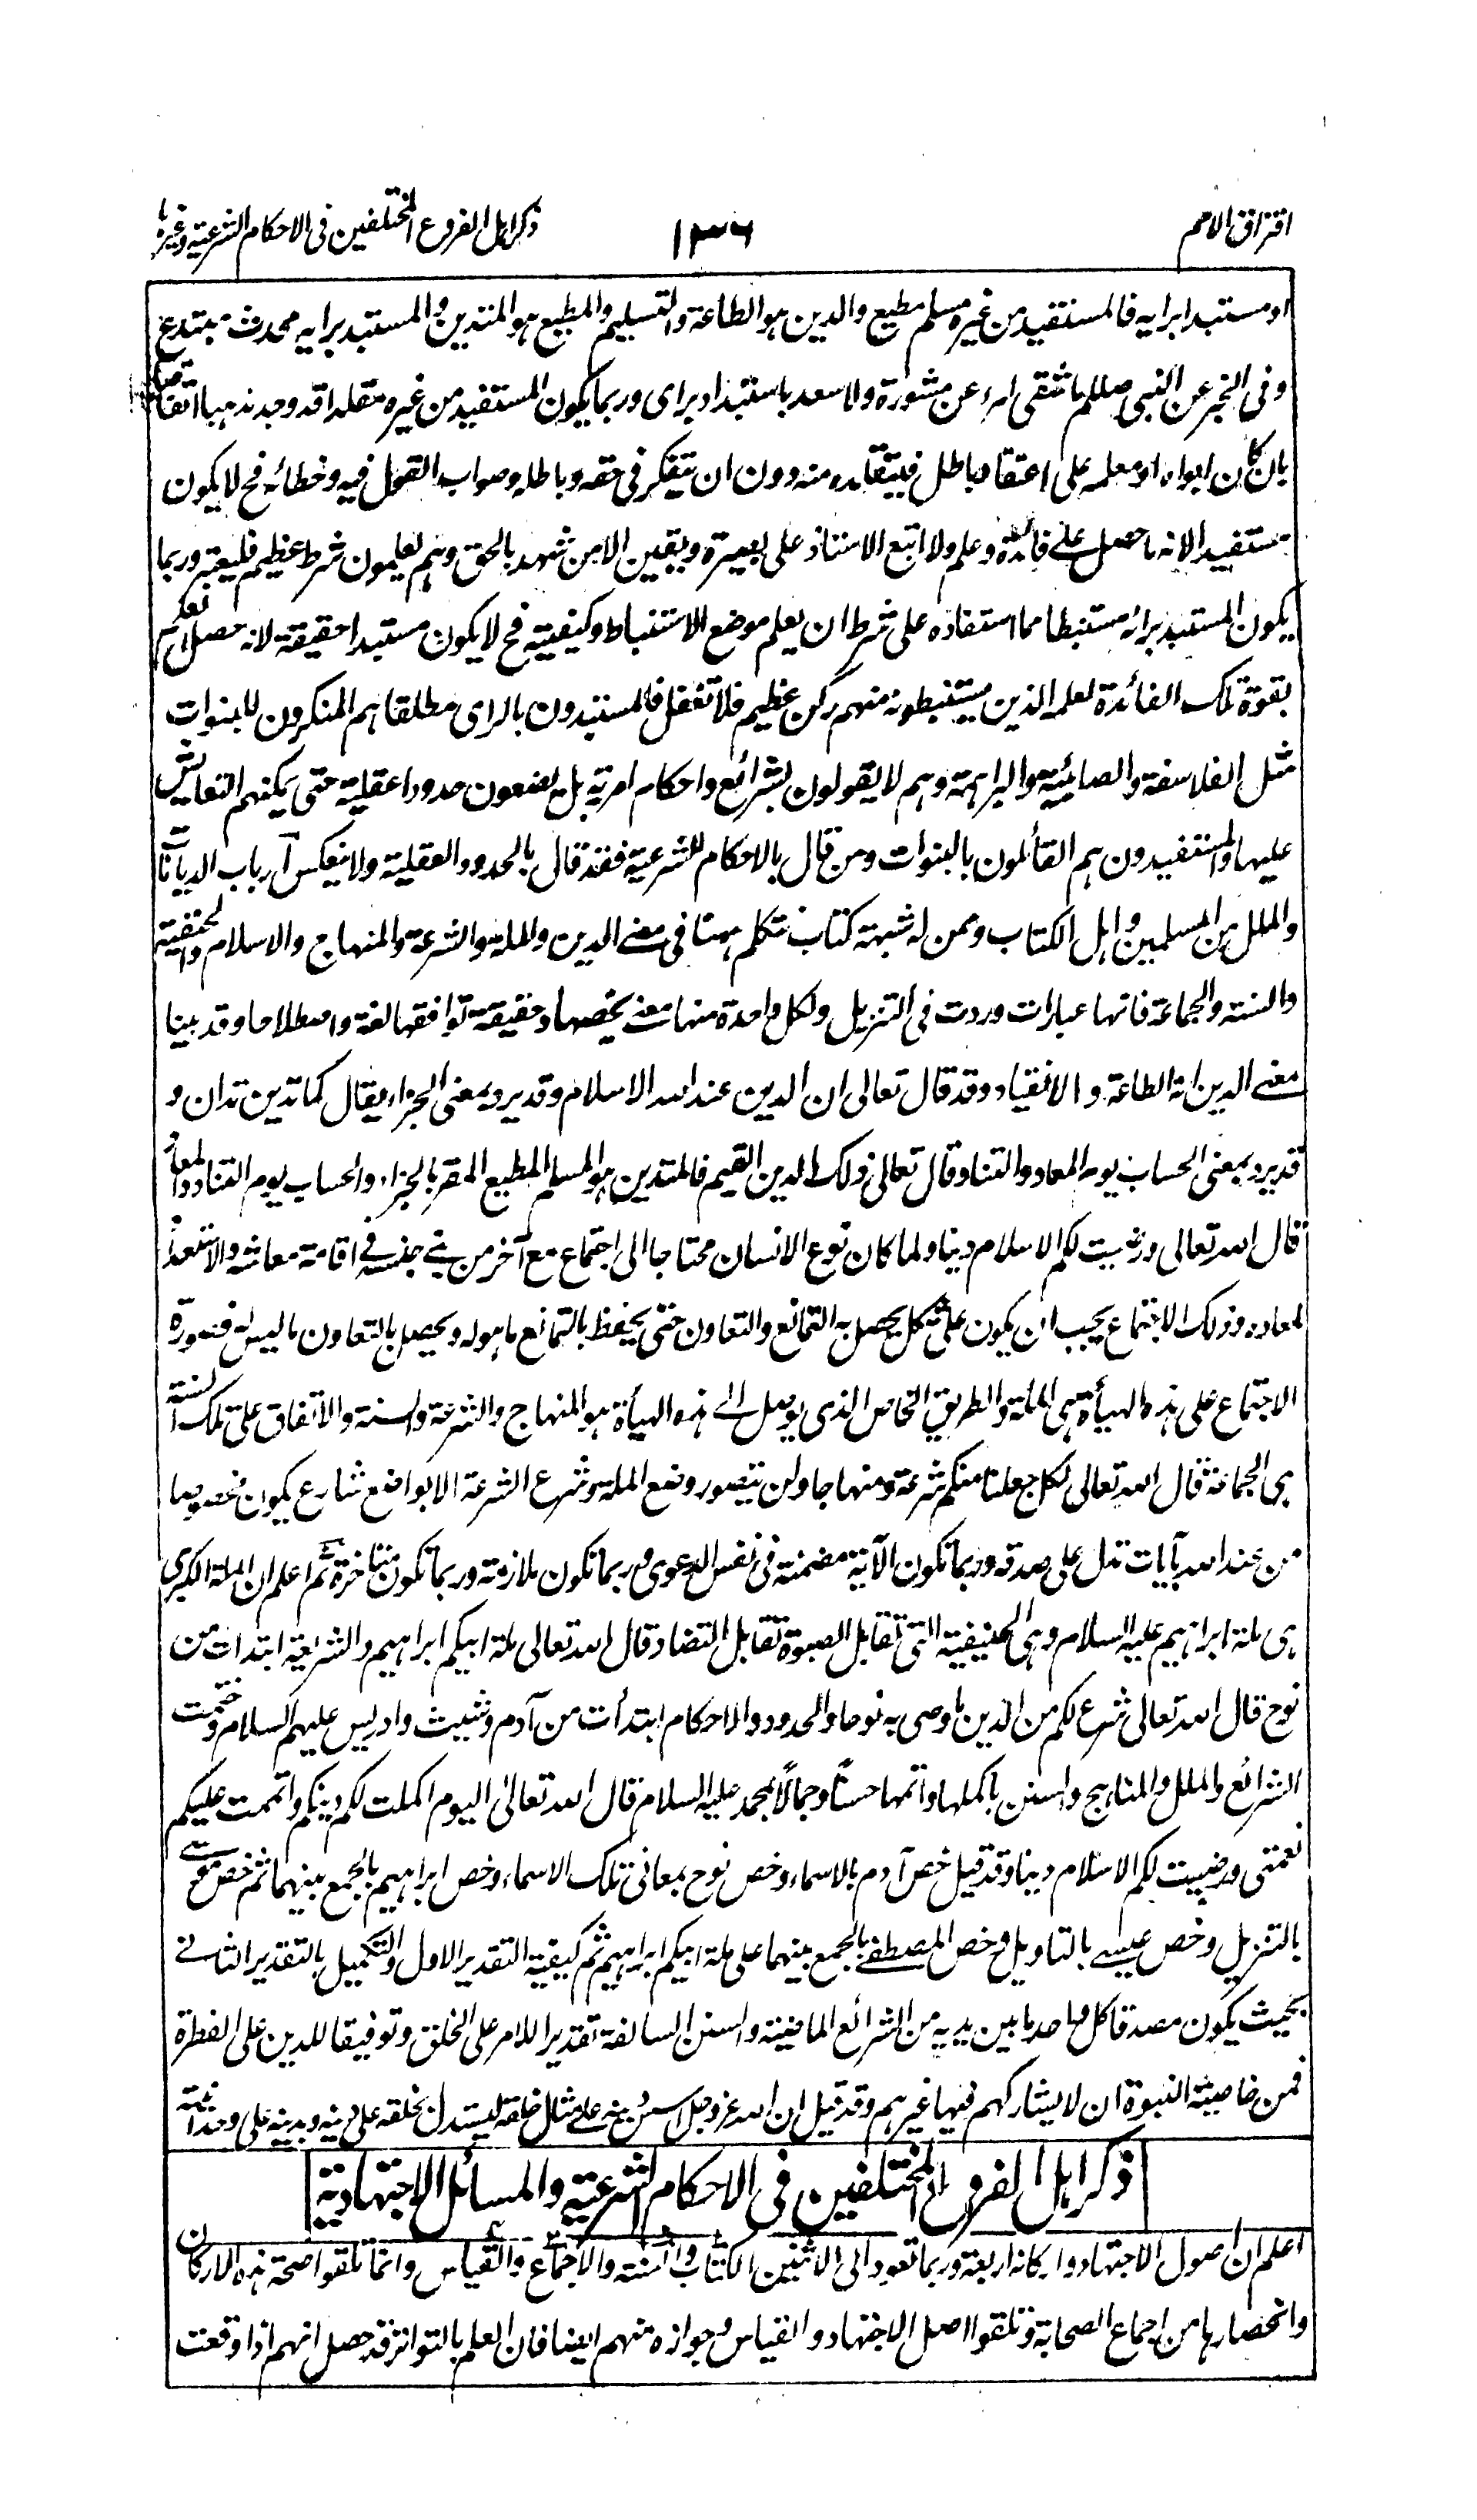 افتراق الامم
١٣٦
ذكر اہل الفروع المختلفين فى الاحكام الشرعية وغيرہا
او مستبدا برايه فالمستفيد من غيره مسلم مطيع والدين ہو الطاعة والتسليم والمطيع ہو المتدين والمستبد برايه محدث مبتدع
وفى الخبر عن النبى صللم ما شقى امرء عن مشورة ولا سعد باستبداد براى وربما يكون المستفيد من غيره مقلدا قد وجد مذہبا اتفاقا
بان كان ابواه او معلمه على اعتقاد باطل فيتقلده منه دون ان يتفكر فى حقه وباطله وصواب القول فيه وخطائه فح لا يكون
مستفيدا لانه ما حصل على فائدة وعلم ولا اتبع الاستاذ على بصيرة ويقين الا من شہد بالحق وہم يعلمون شرط عظيم فليعتبر وربما
يكون المستبد برائه مستنبطا مما استفاده على شرط ان يعلم موضع الاستنباط وكيفيته فح لا يكون مستبدا حقيقة لانه حصل العلم
بقوة تلك الفائدة لعلمه الذين يستنبطونه منہم ركن عظيم فلا تغفل فالمستبدون بالراى مطلقا ہم المنكرون للنبوات
مثل الفلاسفة والصابئة والبراہمة وہم لا يقولون بشرائع واحكام امرية بل يضعون حدودا عقلية حتى يمكنہم التعايش
عليہا والمستفيدون ہم القائلون بالنبوات ومن قال بالاحكام الشرعية فقد قال بالحدود العقلية ولا ينعكس ارباب الديانات
والملل من المسلمين واہل الكتاب وممن له شبہة كتاب نتكلم ہہنا فى معنى الدين والملة والشرعة والمنہاج والاسلام والحنيفية
والسنة والجماعة فانہا عبارات وردت فى التنزيل ولكل واحدة منہا معنى يخصہا وحقيقة توافقہا لغة واصطلاحا وقد بينا
معنى الدين انه الطاعة والانقياد وقد قال تعالى ان الدين عند الله الاسلام وقد يرد بمعنى الجزاء يقال كما تدين تدان و
قد يرد بمعنى الحساب يوم المعاد والتناد وقال تعالى ذلك الدين القيم فالمتدين ہو المسلم المطيع المقر بالجزاء والحساب يوم التناد والمعاد
قال الله تعالى ورضيت لكم الاسلام دينا ولما كان نوع الانسان محتاجا الى اجتماع مع آخر من بنى جنسه فى اقامة معاشه والاستعداد
لمعاده وذلك الاجتماع يجب ان يكون على شكل يحصل به التمانع والتعاون حتى يحفظ بالتمانع ما ہو له ويحصل بالتعاون ما ليس له فصورة
الاجتماع على ہذه الہيأة ہى الملة والطريق الخاص الذى يوصل الى ہذه الہيأة ہو المنہاج والشرعة والسنة والاتفاق على تلك السنة
ہى الجماعة قال الله تعالى لكل جعلنا منكم شرعة ومنہاجا ولن يتصور وضع الملة وشرع الشرعة الا بواضع شارع يكون مخصوصا
من عند الله بآيات تدل على صدقه وربما تكون الآية مضمنة فى نفس الدعوى وربما تكون ملازمة وربما تكون متاخرة ثم اعلم ان الملة الكبرى
ہى ملة ابراہيم عليه السلام وہى الحنيفية التى تقابل الصبوة تقابل التضاد قال الله تعالى ملة ابيكم ابراہيم والشريعة ابتدات من
نوح قال الله تعالى شرع لكم من الدين ما وصى به نوحا والحدود والاحكام ابتدأت من آدم وشيث وادريس عليہم السلام وختمت
الشرائع والملل والمناہج والسنن باكملہا واتمہا حسنًا وجمالًا بمحمد عليه السلام قال الله تعالى اليوم اكملت لكم دينكم واتممت عليكم
نعمتى ورضيت لكم الاسلام دينا وقد قيل خص آدم بالاسماء وخص نوح بمعانى تلك الاسماء وخص ابراہيم بالجمع بينہما ثم خص موسى
بالتنزيل وخص عيسى بالتاويل وخص المصطفى بالجمع بينہما على ملة ابيكم ابراہيم ثم كيفية التقدير الاول والتكميل بالتقدير الثانى
بحيث يكون مصدقا كل واحد ما بين يديه من الشرائع الماضية والسنن السالفة تقديرا للامر على الخلق وتوفيقا للدين على الفطرة
فمن خاصية النبوة ان لا يشاركہم فيہا غيرہم وقد قيل ان الله عز وجل اسس دينه على مثال خلقه ليستدل بخلقه على دينه وبدينه على وحدانيته
ذكر اہل الفروع المختلفين فى الاحكام الشرعية والمسائل الاجتہادية
اعلم ان اصول الاجتہاد واركانه اربعة وربما تعود الى الاثنين الكتاب والسنة والاجماع والقياس وانما تلقوا صحة ہذه الاركان
وانحصارہا من اجماع الصحابة وتلقوا اصل الاجتہاد والقياس وجوازه منہم ايضا فان العلم بالتواتر قد حصل انہم اذا وقعت